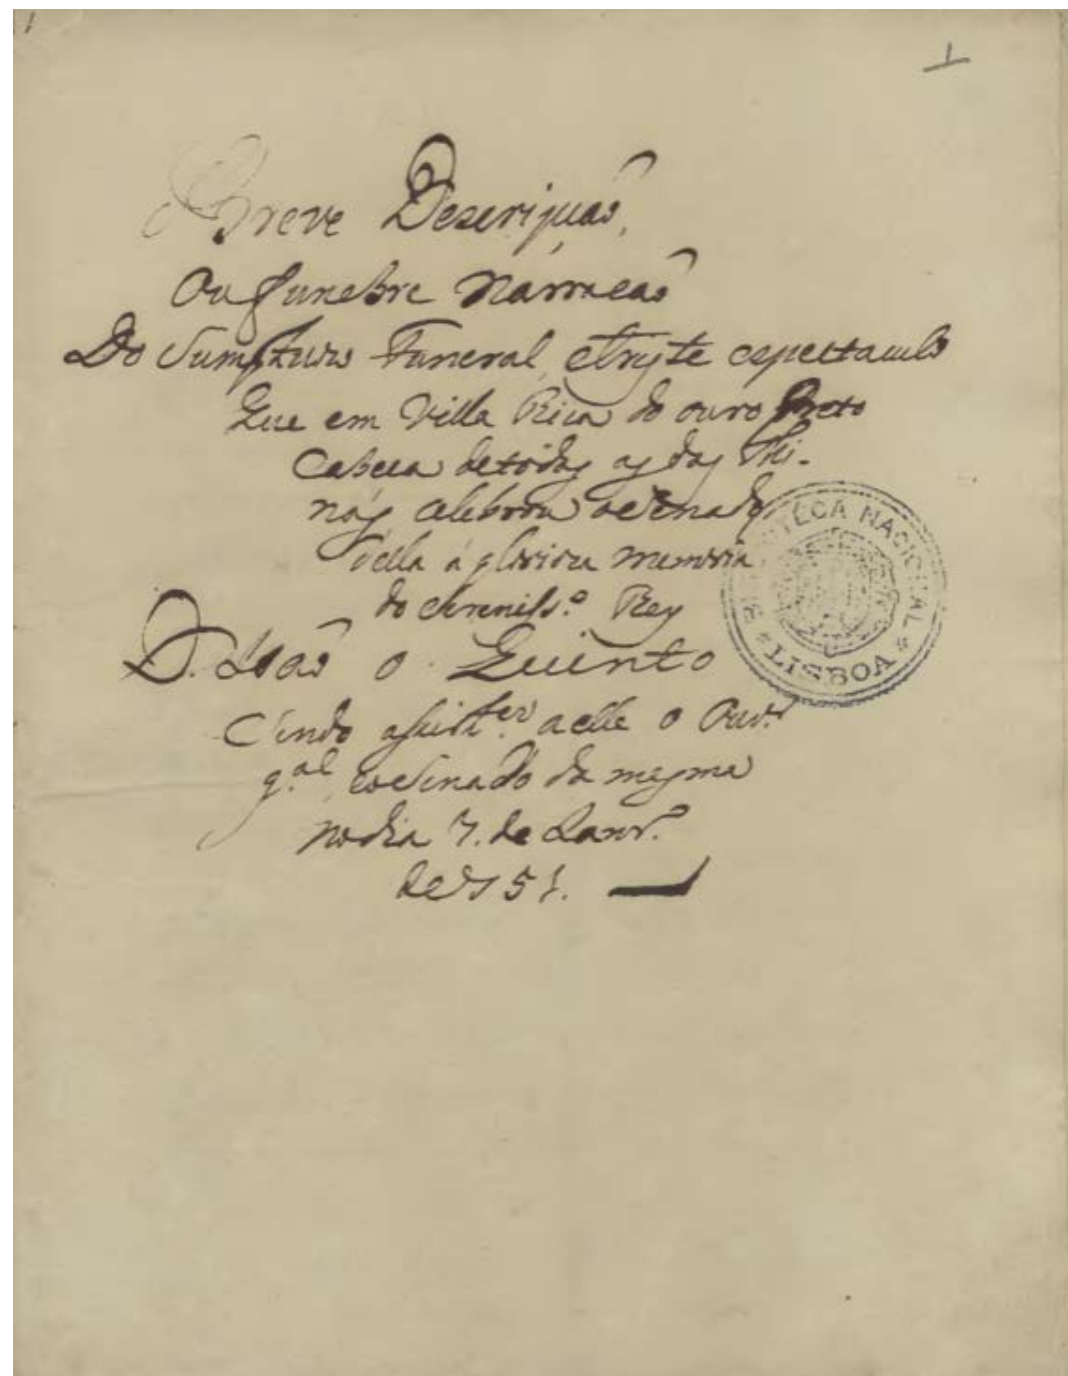 1
1
Breve Descripçaõ,
Ou funebre Narracaõ
Do Sumptuozo Funeral, etryste espectaculo
Que em Villa Rica do ouro Preto
Cabeca detodas as das Mi-
nas, celebrou oSenado
della á glorioza memoria
do Sereniss.º Rey
D. Joaõ o Quinto
Cendo aelle o Ouv.r
g.al, eoSenado da mesma
nodia 7. de Janr.º
de751.
BIBLIOTECA NACIONAL
* LISBOA *